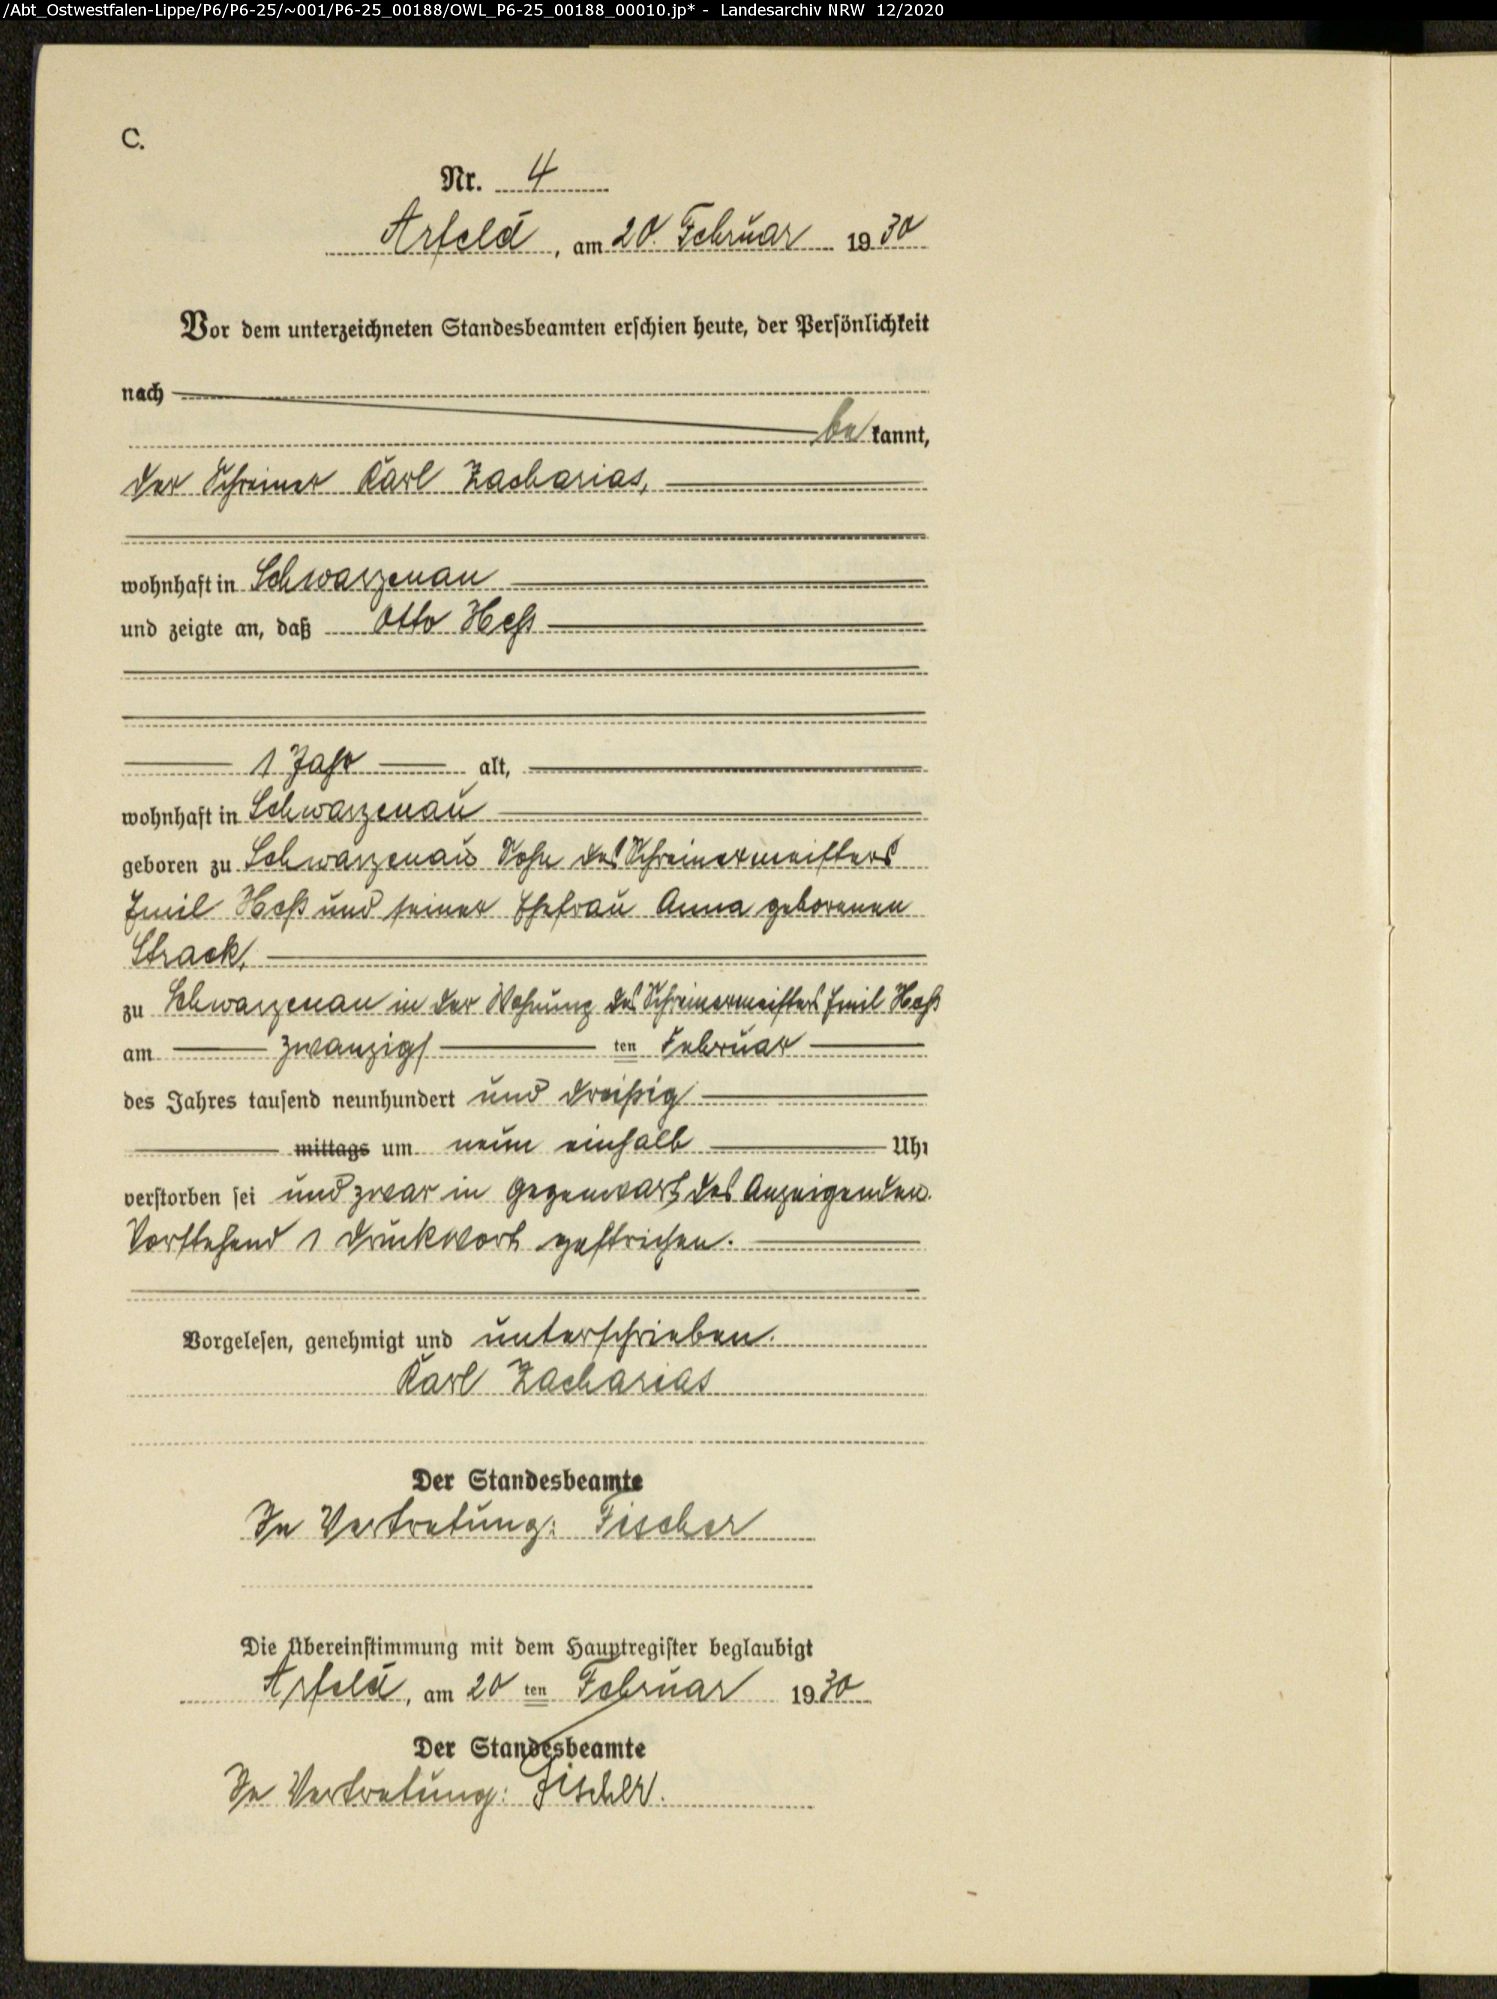 /Abt_Ostwestfalen-Lippe/P6/P6-25/~001/P6-25_00188/OWL_P6-25_00188_00010.jp* - Landesarchiv NRW 12/2020
C.
Nr. 4
Arfeld, am 20. Februar 1930
Vor dem unterzeichneten Standesbeamten erschien heute, der Persönlichkeit
nach
bekannt,
der Schreiner Karl Zacharias,
wohnhaft in Schwarzenau
und zeigte an, daß Otto Heß
1 Jahr alt,
wohnhaft in Schwarzenau
geboren zu Schwarzenau Sohn des Schreinermeisters
Emil Heß und seiner Ehefrau Anna geborenen
Strack,
zu Schwarzenau in der Wohnung des Schreinermeisters Emil Heß
am zwanzigsten Februar
des Jahres tausend neunhundert und dreißig
mittags um neun einhalb Uhr
verstorben sei und zwar in Gegenwart des Anzeigenden.
Vorstehend 1 Druckwort gestrichen.
Vorgelesen, genehmigt und unterschrieben.
Karl Zacharias
Der Standesbeamte
In Vertretung: Fischer
Die Übereinstimmung mit dem Hauptregister beglaubigt
Arfeld, am 20ten Februar 1930
Der Standesbeamte
In Vertretung: Fischer.